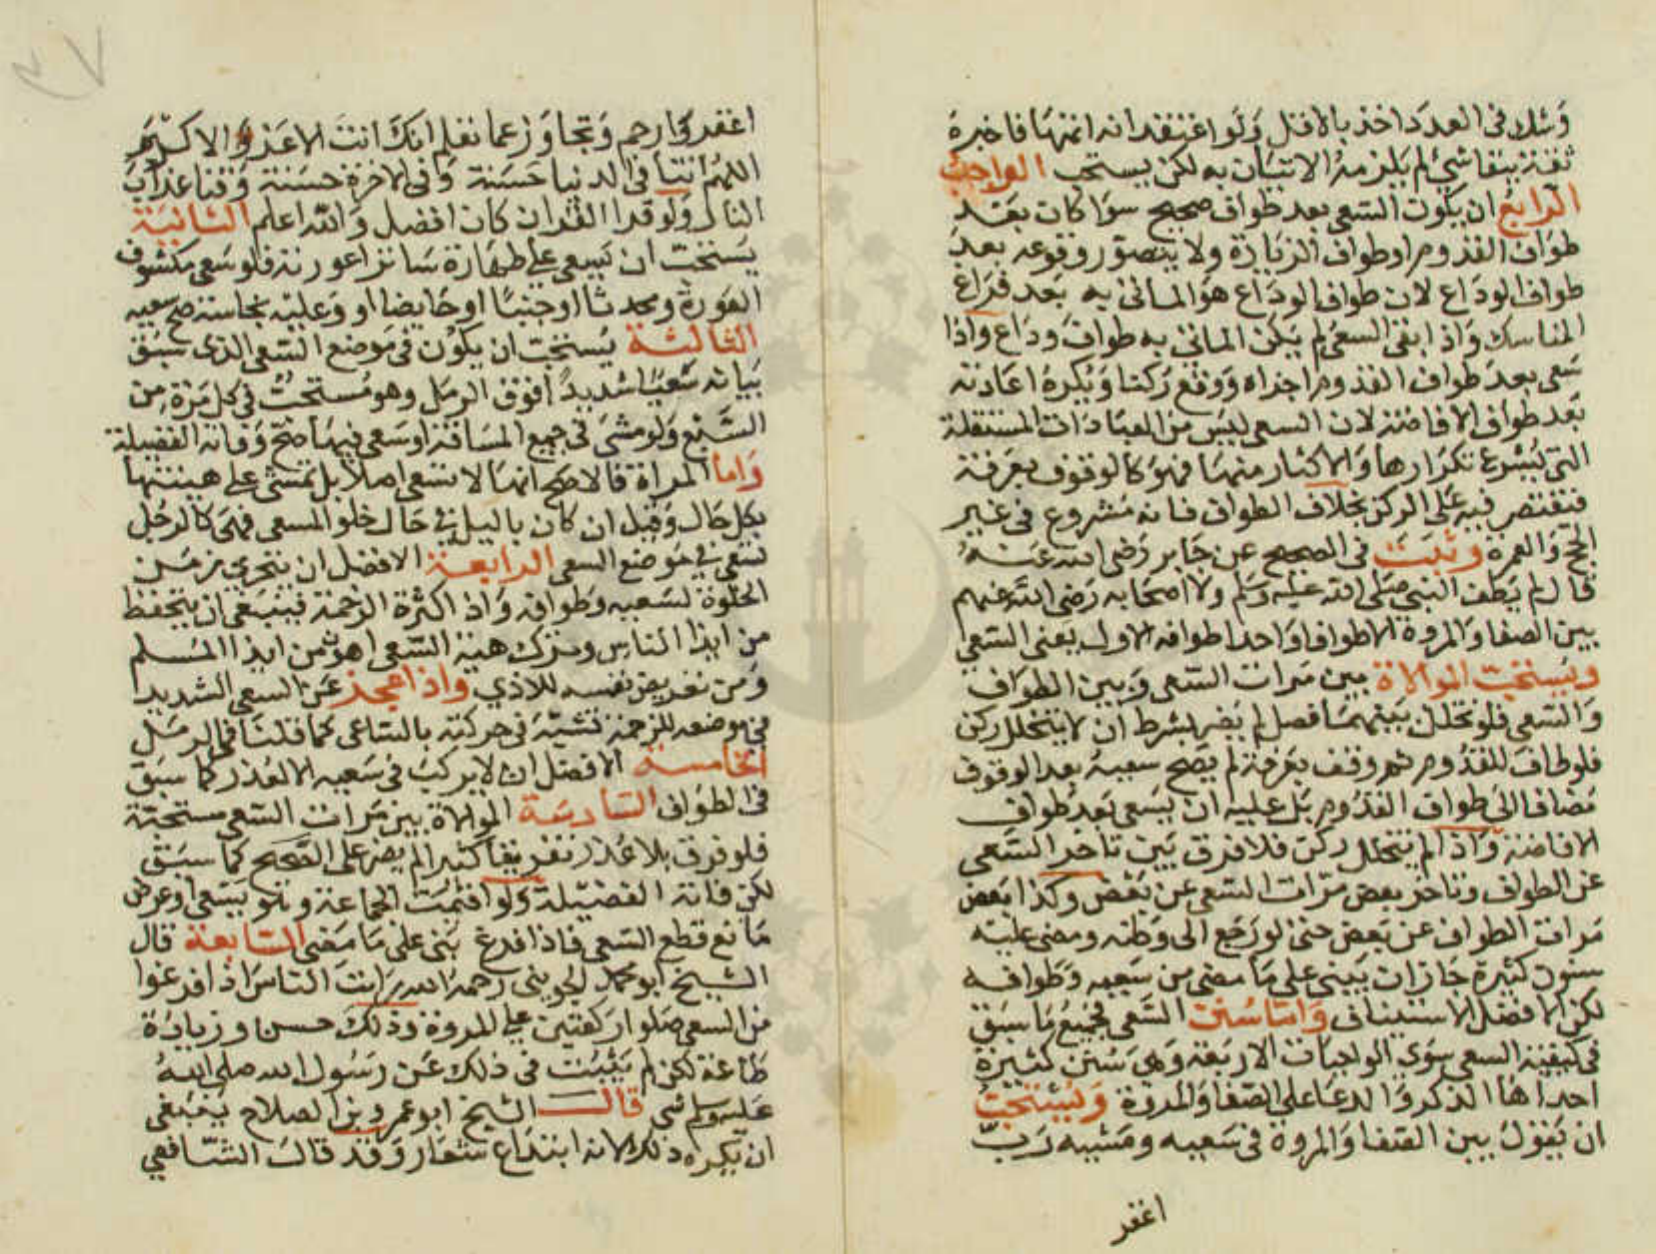 وشك في العدد اخذ بالاقل ولو اعتقد انه اتمها فاخبره
ثقة ببقا شي لم يلزمه الاتيان به لكن يستحب الواجب
الرابع ان يكون السعي بعد طواف صحيح سوا كان بعد
طواف القدوم او طواف الزيارة ولا يتصور وقوعه بعد
طواف الوداع لان طواف الوداع هو الماتي به بعد فراغ
المناسك واذا بقي السعي لم يكن الماتي به طواف وداع واذا
سعى بعد طواف القدوم اجزاه ووقع ركنا ويكره اعادته
بعد طواف الافاضة لان السعي ليس من العبادات المستقلة
التي يشرع تكرارها والاكثار منها فهو كالوقوف بعرفة
فتقتصر فيه على الركن بخلاف الطواف فانه مشروع في غير
الحج والعمرة وثبت في الصحيح عن جابر رضي الله عنه
قال لم يطف النبي صلى الله عليه وسلم ولا اصحابه رضي الله عنهم
بين الصفا والمروة الا طوافا واحدا طوافه الاول يعني السعي
ويستحب الموالاة بين مرات السعي وبين الطواف
والسعي فلو تخلل بينهما فصل لم يضر بشرط ان لا يتخلل ركن
فلو طاف للقدوم ثم وقف بعرفة لم يصح سعيه بعد الوقوف
مضافا الى طواف القدوم بل عليه ان يسعى بعد طواف
الافاضة واذا لم يتخلل ركن فلا فرق بين تاخر السعي
عن الطواف وتاخر بعض مرات السعي عن بعض وكذا بعض
مرات الطواف عن بعض حتى لو رجع الى وطنه ومضى عليه
سنون كثيرة جاز ان يبني على ما مضى من سعيه وطوافه
لكن الافضل الاستيناف واما سنن السعي فجميع ما سبق
في كيفية السعي سوى الواجبات الاربعة وهي سنن كثيرة
احداها الذكر والدعا على الصفا والمروة ويستحب
ان يقول بين الصفا والمروة في سعيه ومشيه رب
اغفر
٤٧
اغفر وارحم وتجاوز عما تعلم انك انت الاعز والاكرم
اللهم اتنا في الدنيا حسنة وفي الاخرة حسنة وقنا عذاب
النار ولو قرا القران كان افضل والله اعلم الثانية
يستحب ان يسعى على طهارة ساترا عورته فلو سعى مكشوف
العورة ومحدثا او جنبا او حايضا او وعليه نجاسة صح سعيه
الثالثة يستحب ان يكون في موضع السعي الذي سبق
بيانه سعيا شديدا فوق الرمل وهو مستحب في كل مرة من
السبع ولو مشى في جميع المسافة او سعى فيها صح وفاته الفضيلة
واما المراة فالاصح انها لا تسعى اصلا بل تمشي على هينتها
بكل حال وقيل ان كان بالليل في حال خلو المسعى فهي كالرجل
تسعى في موضع السعي الرابعة الافضل ان يتحرى زمن
الخلوة لسعيه وطوافه واذا كثرة الزحمة فينبغي ان يتحفظ
من ايذا الناس وترك هيئة السعي اهون من ايذا المسلم
ومن تعريض نفسه للاذي واذا عجز عن السعي الشديد
في موضعه للزحمة تشبه في حركته بالساعي كما قلنا في الرمل
الخامسة الافضل ان لا يركب في سعيه الا لعذر كما سبق
في الطواف السادسة الموالاة بين مرات السعي مستحبة
فلو فرق بلا عذر تفريقا كثيرا لم يضر على الصحيح كما سبق
لكن فاتة الفضيلة ولو اقيمت الجماعة وهو يسعى او عرض
مانع قطع السعي فاذا فرغ بنى على ما مضى السابعة قال
الشيخ ابو محمد الجويني رحمه الله رايت الناس اذا فرغوا
من السعي صلوا ركعتين على المروة وذلك حسن وزيادة
طاعة لكن لم يثبت في ذلك عن رسول الله صلى الله
عليه وسلم شي قال الشيخ ابو عمرو بن الصلاح ينبغي
ان يكره ذلك لانه ابتداع شعار وقد قال الشافعي